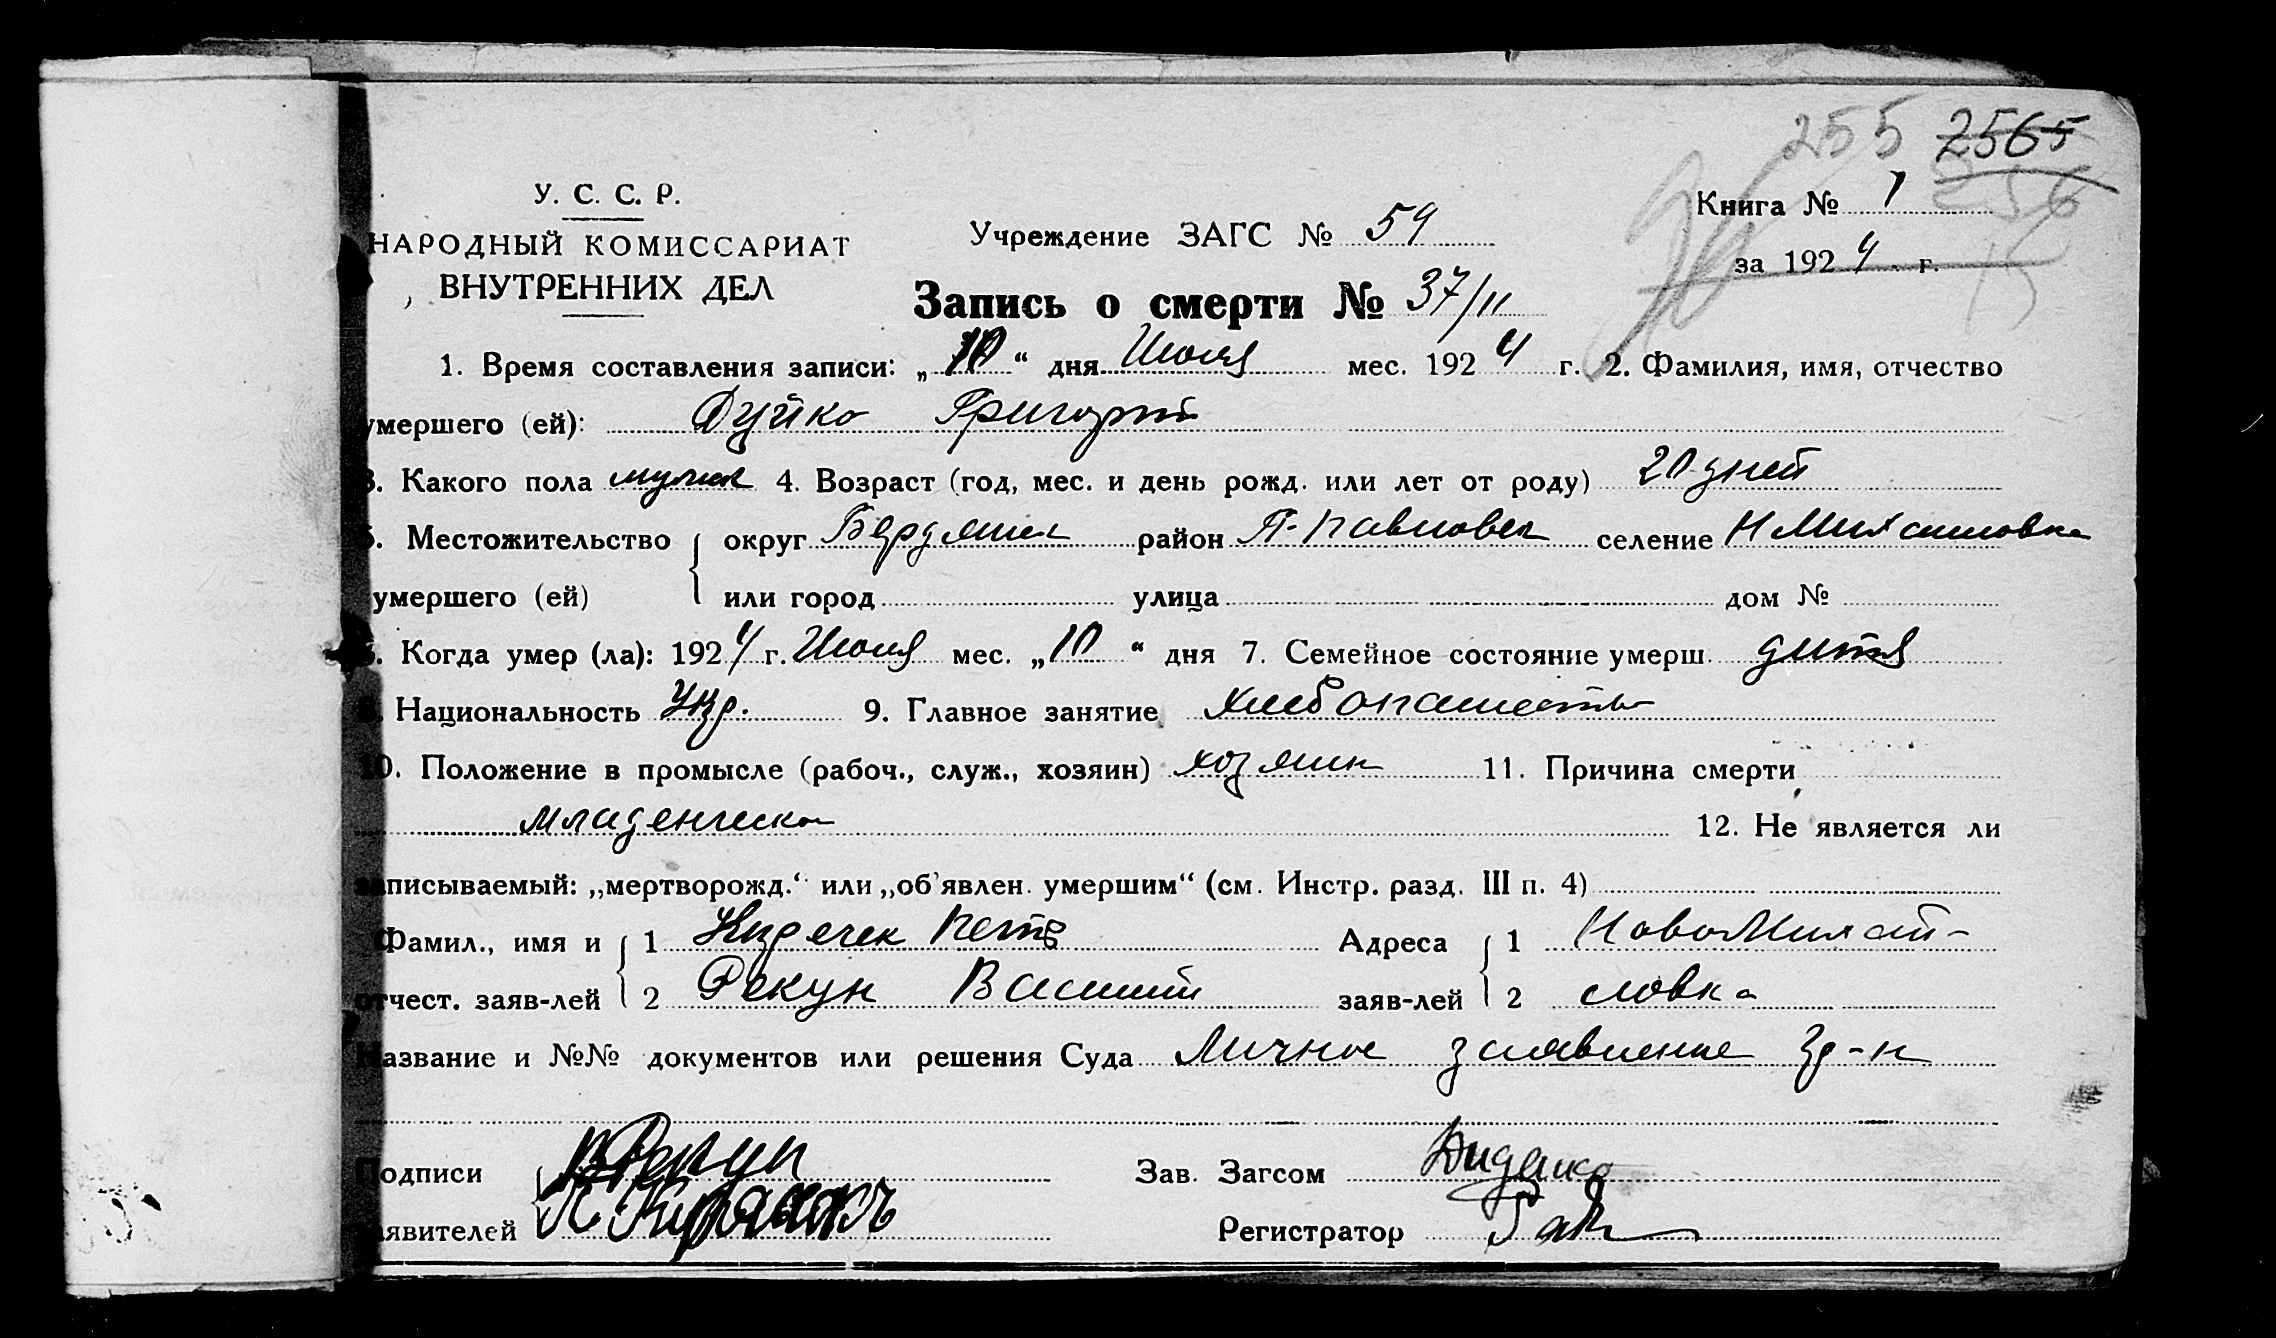 255 2565
256
15
У. С. С. Р.
НАРОДНЫЙ КОМИССАРИАТ
ВНУТРЕННИХ ДЕЛ
Учреждение ЗАГС № 59
Книга № 1
за 1924 г.
Запись о смерти № 37/11
1. Время составления записи: „10“ дня Июля мес. 1924 г. 2. Фамилия, имя, отчество
умершего (ей): Дуйко Григорий
3. Какого пола мужск 4. Возраст (год, мес. и день рожд. или лет от роду) 20 дней
5. Местожительство округ Бердянск район П-Павловск селение Н Михайловка
умершего (ей) или город улица дом №
6. Когда умер (ла): 1924 г. Июля мес. „10“ дня 7. Семейное состояние умерш. дитя
8. Национальность Укр. 9. Главное занятие хлебопашество
10. Положение в промысле (рабоч., служ., хозяин) хозяин 11. Причина смерти
младенческая 12. Не является ли
записываемый: „мертворожд.“ или „об'явлен. умершим“ (см. Инстр. разд. III п. 4)
Фамил., имя и 1 Петр Адреса 1 НовоМихай-
отчест. заяв-лей 2 Рекун Василий заяв-лей 2 ловка
Название и №№ документов или решения Суда Личное заявление гр-н
Подписи В Рекун Зав. Загсом
заявителей Регистратор